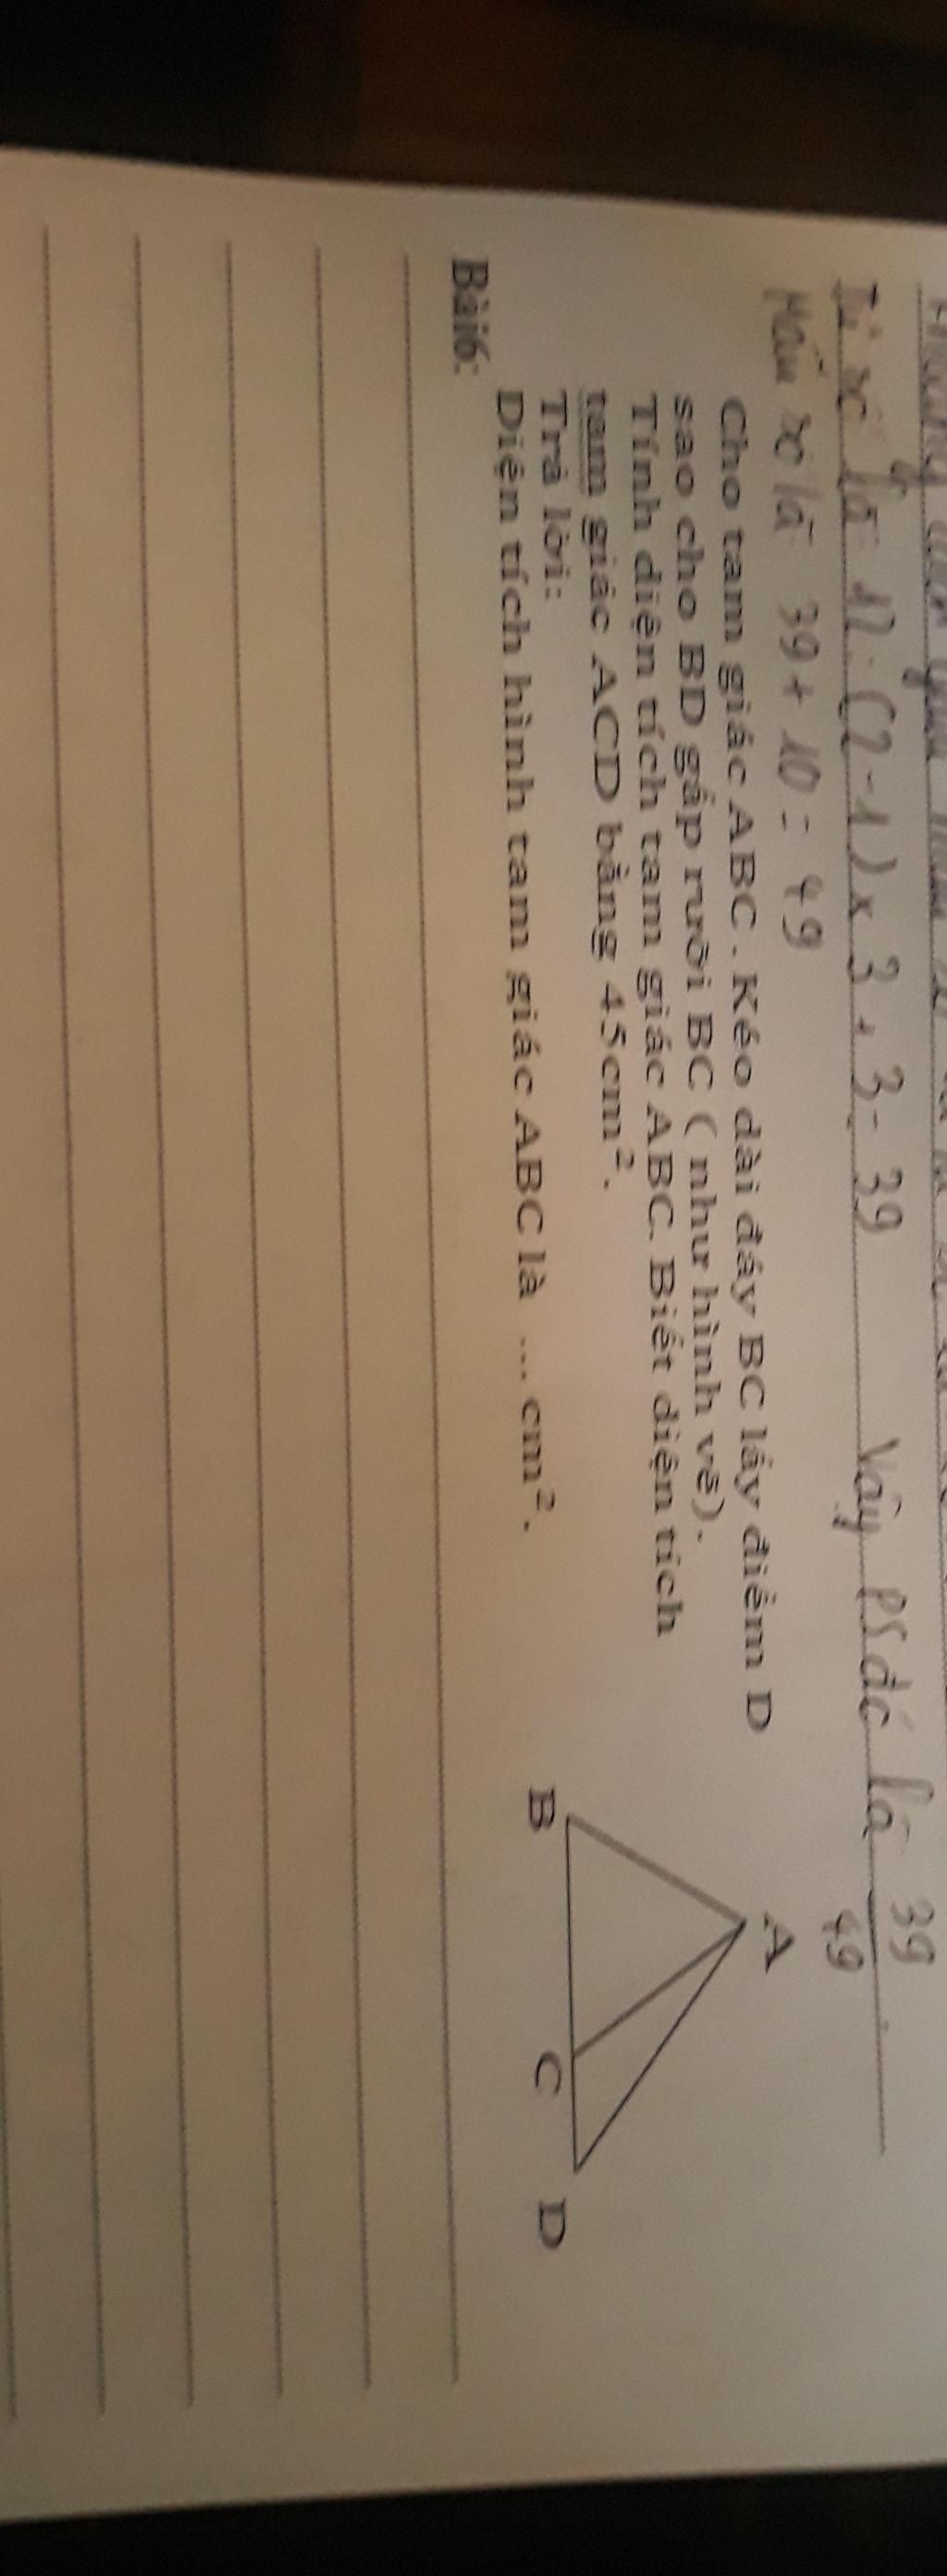 Tử số là 12: (2-1) x 3 + 3 = 39 Vậy PS đó là 39
49
Mẫu số là 39 + 10 = 49
Cho tam giác ABC . Kéo dài đáy BC lấy điểm D
sao cho BD gấp rưỡi BC ( như hình vẽ).
Tính diện tích tam giác ABC. Biết diện tích
tam giác ACD bằng 45cm².
Trả lời:
Diện tích hình tam giác ABC là .... cm².
A
B C D
Bài6: